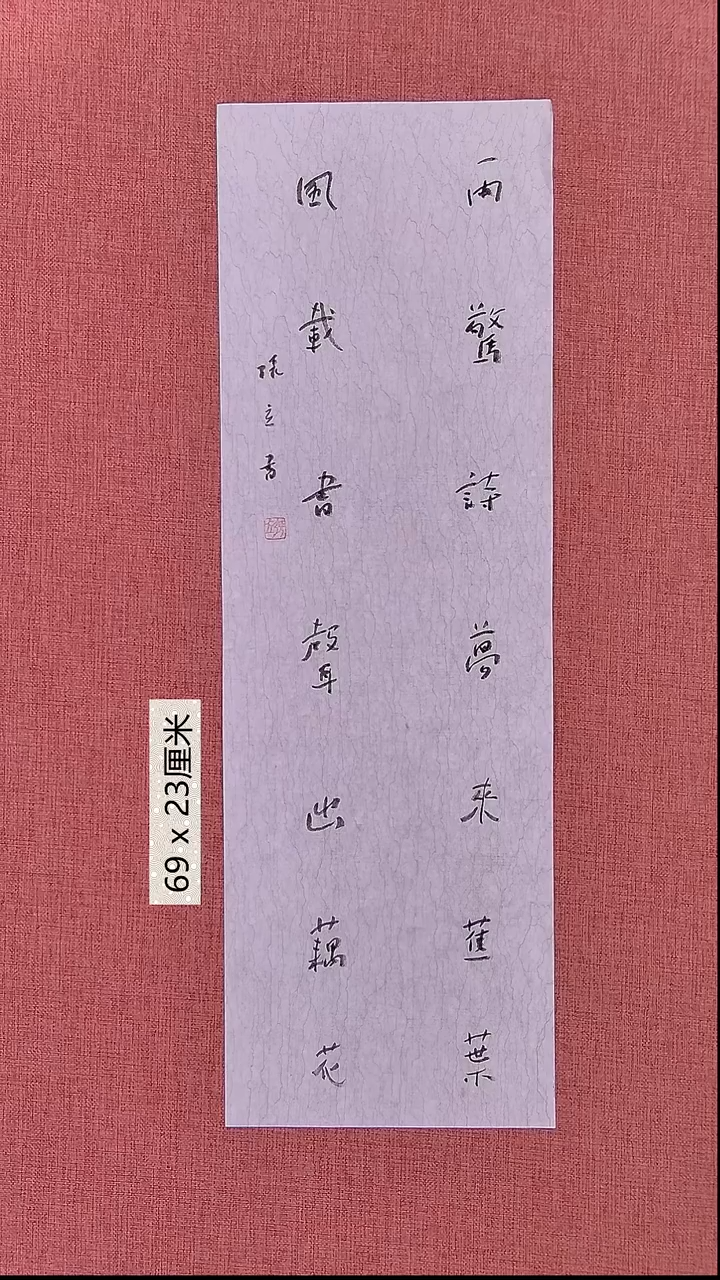 雨驚詩夢來蕉葉
風載書聲出藕花
立
69 x 23厘米